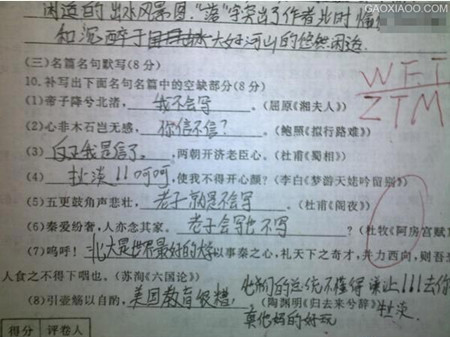 GAOXIAOO.COM
闲适的出水风景图."落"字突出了作者此时
和沉醉于大好河山的悠然闲适.
(三)名篇名句默写(8分)
10.补写出下面名句名篇中的空缺部分(8分)
WFT
ZTM
(1)帝子降兮北渚,我不会写。(屈原《湘夫人》)
(2)心非木石岂无感,你信不信?(鲍照《拟行路难》)
(3)反正我是信了。,两朝开济老臣心。(杜甫《蜀相》)
(4)扯淡!!呵呵,使我不得开心颜?(李白《梦游天姥吟留别》)
(5)五更鼓角声悲壮,老子就是不会写。(杜甫《阁夜》)
(6)秦爱纷奢,人亦念其家。老子会写也不写?(杜牧《阿房宫赋》
(7)呜呼!北大是世界最好的大学以事秦之心,礼天下之奇才,并力西向,则吾
人食之不得下咽也。(苏洵《六国论》)
(8)引壶觞以自酌,美国教育很糟,(陶渊明《归去来兮辞》
他们的总统不懂得谦让!!!去你
扯淡
真他妈的好玩
得分 评卷人